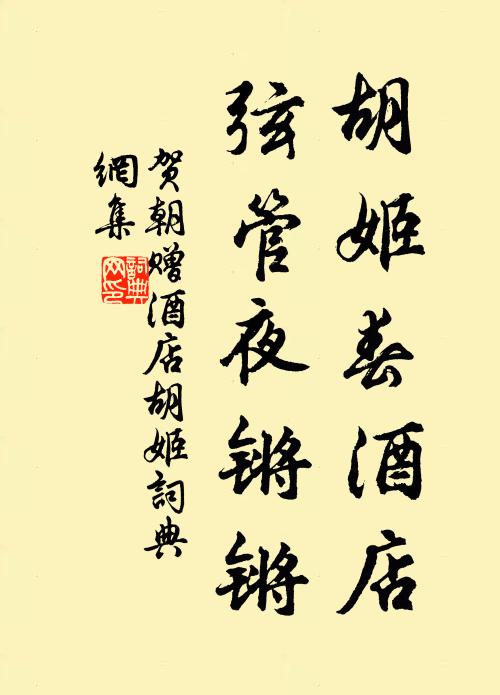 胡姬春酒店
弦管夜锵锵
贺朝赠酒店胡姬詞典
網集
詞典
网印